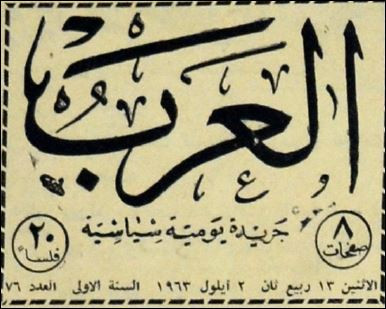 العرب
جريدة يومية سياسية
٨ صفحات
٢٠ فلساً
الاثنين ١٣ ربيع ثان ٢ أيلول ١٩٦٣ السنة الاولى العدد ٧٦